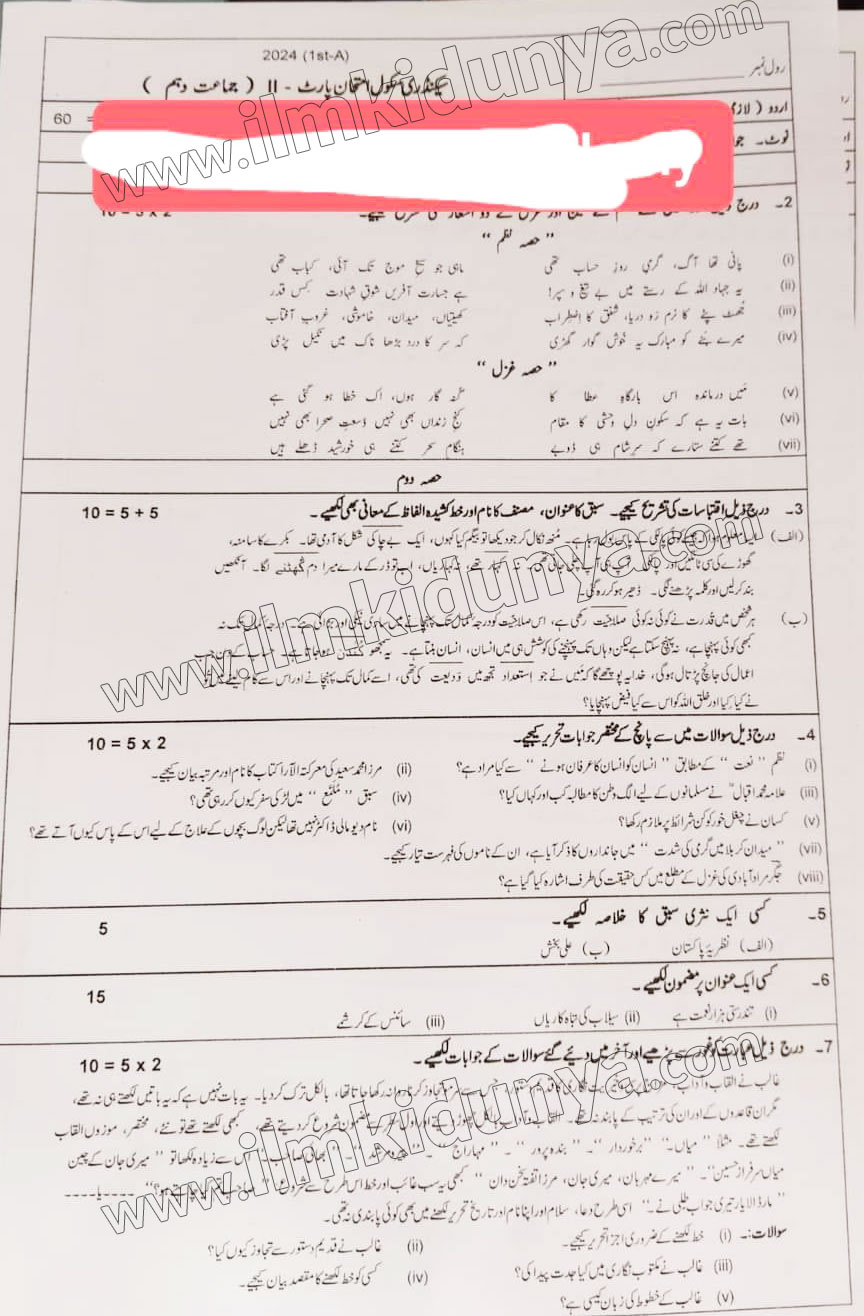 2024 (1st-A)
رول نمبر
سیکنڈری سکول امتحان پارٹ - II ( جماعت دہم )
اردو ( لازمی
60 =
نوٹ۔
2۔ درج
10 = 5 x 2
" حصہ نظم "
(i) پانی تھا آگ، گرمی روزِ حساب تھی ماہی جو سیخِ موج تک آئی، کباب تھی
(ii) یہ جہاد اللہ کے رستے میں بے تیغ و سپر! ہے جسارت آفریں شوقِ شہادت کس قدر
(iii) جُھٹ پٹے کا نرم رَو دریا، شفق کا اضطراب کھیتیاں، میدان، خاموشی، غروبِ آفتاب
(iv) میرے بنّے کو مبارک یہ خوش گوار گھڑی کہ سر کا درد بڑھا ناک میں نکیل پڑی
" حصہ غزل "
(v) مَیں درماندہ اس بارگاہِ عطا کا گنہ گار ہوں، اک خطا ہو گئی ہے
(vi) بات یہ ہے کہ سکونِ دلِ وحشی کا مقام کنجِ زنداں بھی نہیں وُسعتِ صحرا بھی نہیں
(vii) تھے کتنے ستارے کہ سرِشام ہی ڈوبے ہنگامِ سحر کتنے ہی خورشید ڈھلے ہیں
حصہ دوم
3۔ درج ذیل اقتباسات کی تشریح کیجیے۔ سبق کا عنوان، مصنف کا نام اور خط کشیدہ الفاظ کے معانی بھی لکھیے۔ 10 = 5 + 5
(الف) معلوم ہوا کہ جیسے کوئی پالکی کے پاس بول رہا ہے۔ مُنھ نکال کر جو دیکھا تو بیگم کیا کہوں، ایک بے چا کی شکل کا آدمی تھا۔ بکرے کا سا منہ،
گھوڑے کی سی ٹانگیں اور پالکی آپ ہی آپ چلی جاتی تھی۔ نہ کہار تھے، نہ کہاریاں، اب تو ڈر کے مارے میرا دم گھٹنے لگا۔ آنکھیں
بند کر لیں اور کلمہ پڑھنے لگی۔ ڈھیر ہو کر رہ گئی۔
(ب) ہر شخص میں قدرت نے کوئی نہ کوئی صلاحیت رکھی ہے، اس صلاحیت کو درجہ کمال تک پہنچانے میں ساری نیکی اور بڑائی ہے۔ درجہ کمال تک نہ
کبھی کوئی پہنچا ہے، نہ پہنچ سکتا ہے لیکن وہاں تک پہنچنے کی کوشش ہی میں انسان، انسان بنتا ہے۔ یہ سمجھو کُندن ہو جاتا ہے۔ حساب کے دن جب
اعمال کی جانچ پڑتال ہوگی، خدا یہ پوچھے گا کہ مَیں نے جو استعداد تجھ میں ودیعت کی تھی، اسے کمال تک پہنچانے اور اس سے کام لینے میں تُو
نے کیا کِیا اور خلق اللہ کو اس سے کیا فیض پہنچایا؟
4۔ درج ذیل سوالات میں سے پانچ کے مختصر جوابات تحریر کیجیے۔ 10 = 5 x 2
(i) نظم " نعت " کے مطابق " انسان کو انسان کا عرفان ہونے " سے کیا مراد ہے؟ (ii) مرزا محمد سعید کی معرکتہ الآرا کتاب کا نام اور مرتبہ بیان کیجیے۔
(iii) علامہ محمد اقبالؒ نے مسلمانوں کے لیے الگ وطن کا مطالبہ کب اور کہاں کیا؟ (iv) سبق " مُلمّع " میں لڑکی سفر کیوں کر رہی تھی؟
(v) کسان نے چغل خور کو کن شرائط پر ملازم رکھا؟ (vi) نام دیو مالی ڈاکٹر نہیں تھا لیکن لوگ بچوں کے علاج کے لیے اس کے پاس کیوں آتے تھے؟
(vii) " میدانِ کربلا میں گرمی کی شدت " میں جانداروں کا ذکر آیا ہے، ان کے ناموں کی فہرست تیار کیجیے۔
(viii) جگر مراد آبادی کی غزل کے مطلع میں کس حقیقت کی طرف اشارہ کیا گیا ہے؟
5۔ کسی ایک نثری سبق کا خلاصہ لکھیے۔ 5
(الف) نظریۂ پاکستان (ب) علی بخش
6۔ کسی ایک عنوان پر مضمون لکھیے۔ 15
(i) تندرستی ہزار نعت ہے (ii) سیلاب کی تباہ کاریاں (iii) سائنس کے کرشمے
7۔ درج ذیل عبارت کو غور سے پڑھیے اور آخر میں دیئے گئے سوالات کے جوابات لکھیے۔ 10 = 5 x 2
غالب نے القاب و آداب، نگاری کا قدیم دستور، جس سے سرِ مُو تجاوز کرنا روا نہ رکھا جاتا تھا، بالکل ترک کر دیا۔ یہ بات نہیں ہے کہ یہ باتیں لکھتے ہی نہ تھے،
مگر ان قاعدوں کے اور ان کی ترتیب کے پابند نہ تھے۔ القاب و آداب بالکل چھوڑ دیے اور اول سطر سے مضمون شروع کر دیتے تھے، کبھی لکھتے تھے تو نئے، مختصر، موزوں القاب
لکھتے تھے۔ مثلاً " میاں۔" "برخوردار "۔ " بندہ پرور "۔ " مہاراج "۔ " پیر و مرشد "۔ " بھائی صاحب "۔ اس سے زیادہ لکھا تو " میری جان کے چین
میاں سرفراز حسین"۔ " میرے مہربان، میری جان، مرزا تفتہ سخن دان " کبھی یہ سب غائب اور خط اس طرح سے شروع: " صاحب ہو؟" -----یا-----
" مار ڈالا یار تیری جواب طلبی نے۔" اسی طرح دعا، سلام اور اپنا نام اور تاریخ تحریر لکھنے میں بھی کوئی پابندی نہ تھی۔
سوالات:۔ (i) خط لکھنے کے ضروری اجزا تحریر کیجیے۔ (ii) غالب نے قدیم دستور سے تجاوز کیوں کیا؟
(iii) غالب نے مکتوب نگاری میں کیا جدت پیدا کی؟ (iv) کسی کو خط لکھنے کا مقصد بیان کیجیے۔
(v) غالب کے خطوط کی زبان کیسی ہے؟
www.ilmkidunya.com
www.ilmkidunya.com
www.ilmkidunya.com